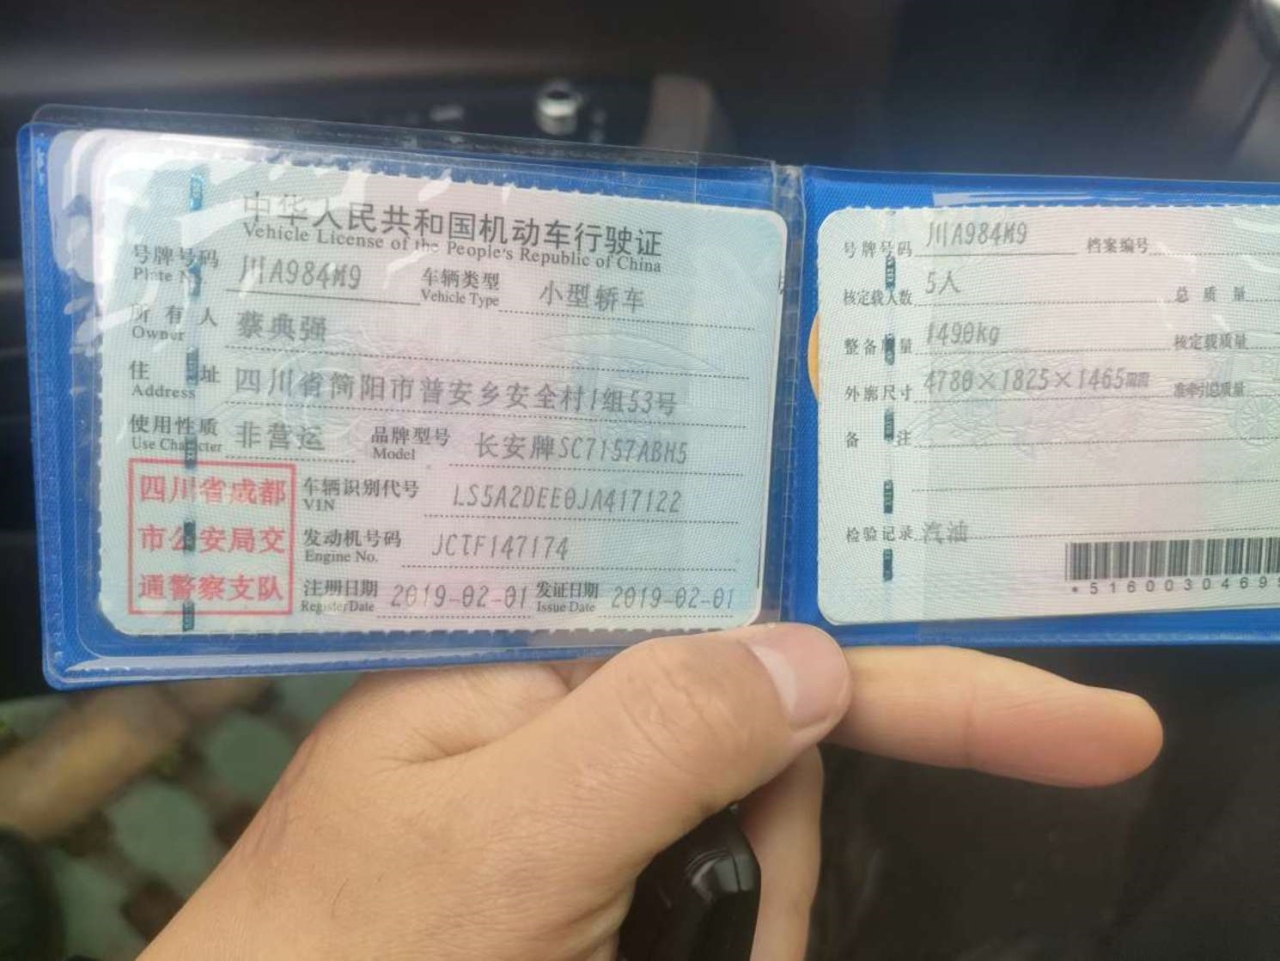 中华人民共和国机动车行驶证
Vehicle License of the People's Republic of China
号牌号码 川A984M9 车辆类型 小型轿车
Plate N Vehicle Type
所有人 蔡典强
Owner
住址 四川省简阳市普安乡安全村1组53号
Address
使用性质 非营运 品牌型号 长安牌SC7157ABH5
Use Character Model
四川省成都
市公安局交
通警察支队
车辆识别代号 LS5A2DEE0JA417122
VIN
发动机号码 JCTF147174
Engine No.
注册日期 2019-02-01 发证日期 2019-02-01
Register Date Issue Date
号牌号码 川A984M9 档案编号
核定载人数 5人 总质量
整备质量 1490kg 核定载质量
外廓尺寸 4780×1825×1465mm 准牵引总质量
备注
检验记录 汽油
*516003046